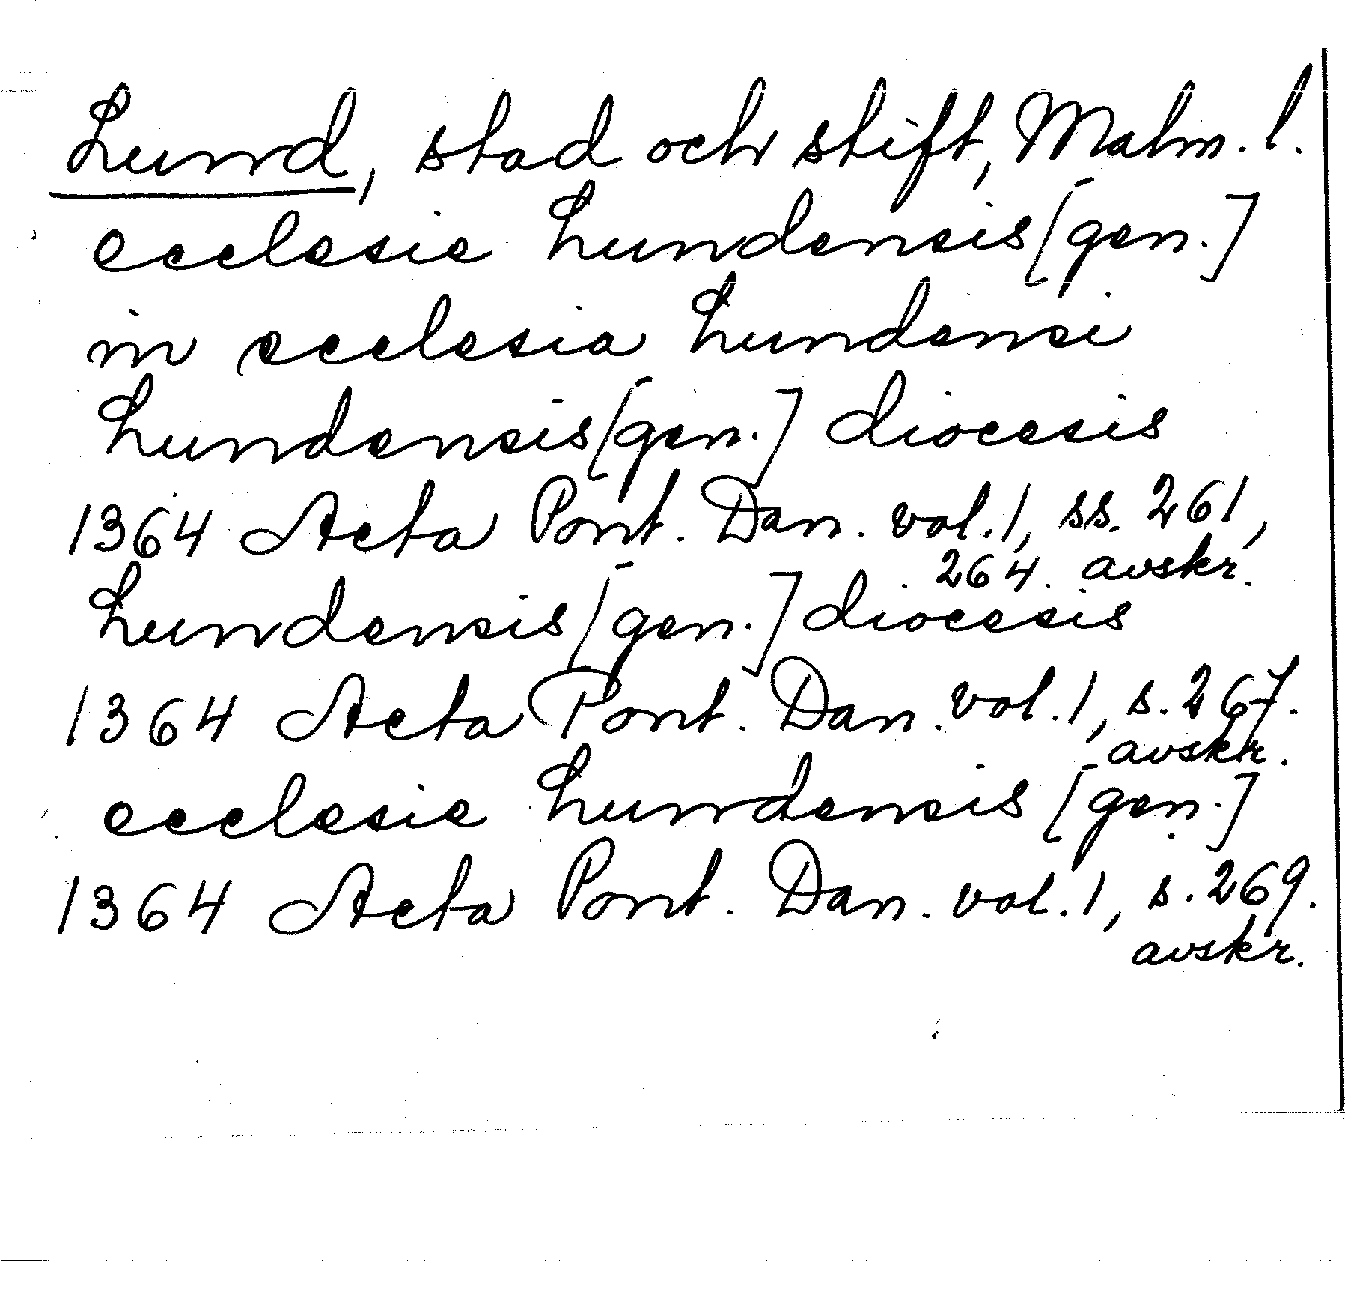 Lund, stad och stift, Malm. l.
ecclesie Lundensis [gen.]
in ecclesia Lundensi
Lundensis [gen.] diocesis
1364 Acta Pont. Dan. vol. 1, ss. 261,
264. avskr.
Lundensis [gen.] diocesis
1364 Acta Pont. Dan. vol. 1, s. 267.
avskr.
ecclesie Lundensis [gen.]
1364 Acta Pont. Dan. vol. 1, s. 269.
avskr.